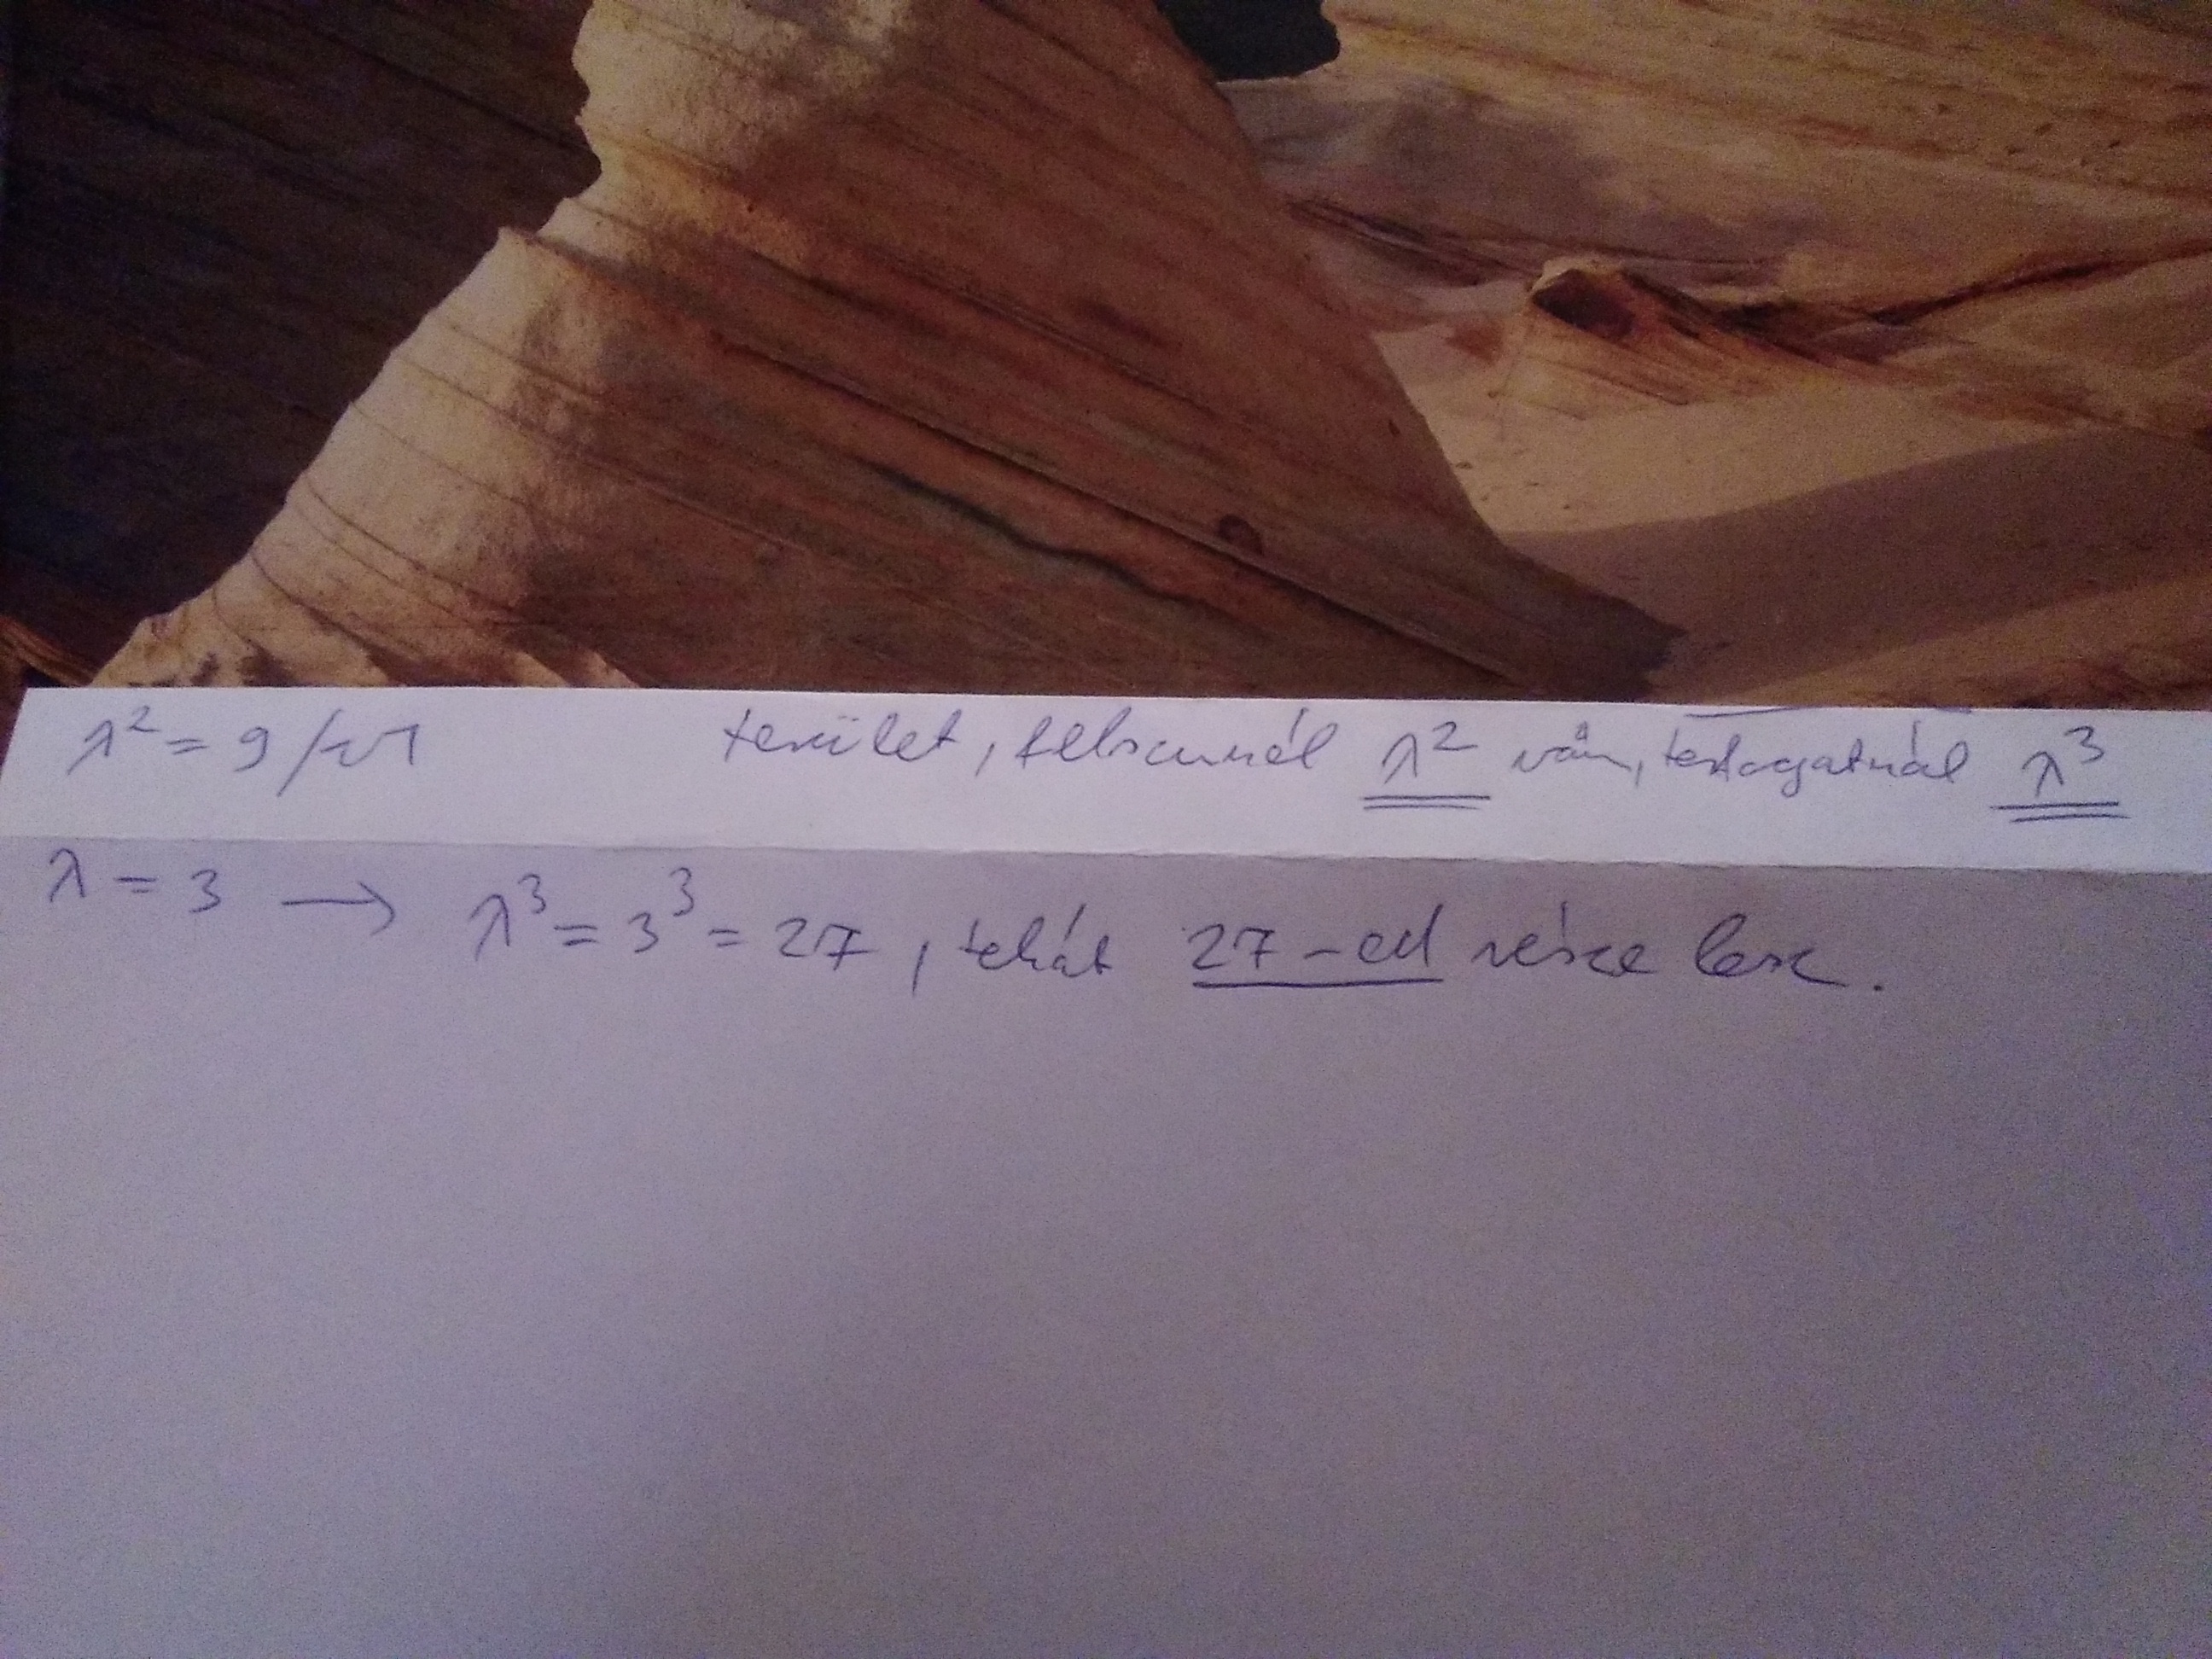 λ² = 9 /√ terület, felszínnél λ² van, térfogatnál λ³
λ = 3 → λ³ = 3³ = 27, tehát 27-ed része lesz.